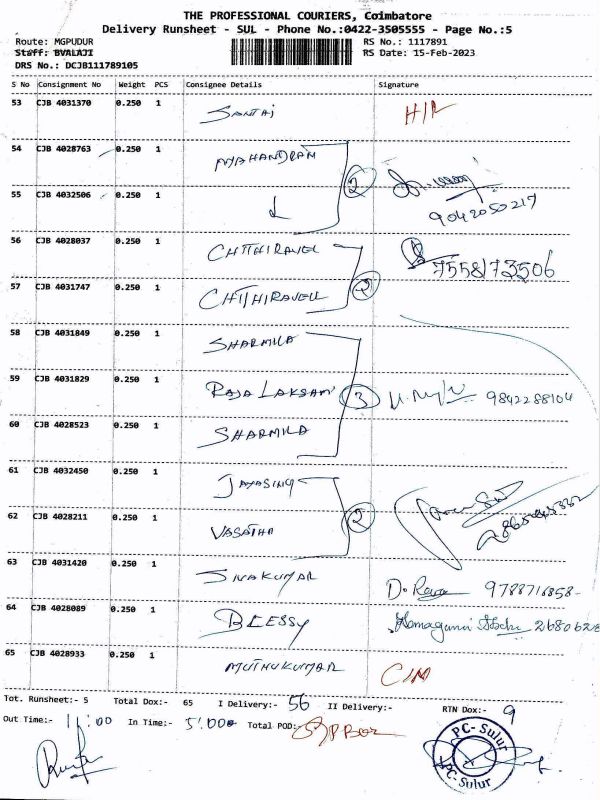 THE PROFESSIONAL COURIERS, Coimbatore
Delivery Runsheet - SUL - Phone No.:0422-3505555 - Page No.:5
Route: MGPUDUR RS No.: 1117891
Staff: BVALAJI RS Date: 15-Feb-2023
DRS No.: DCJB111789105
S No Consignment No Weight PCS Consignee Details Signature
53 CJB 4031370 0.250 1 SANTAJ
54 CJB 4028763 0.250 1 MAHANDRAN 2
55 CJB 4032506 0.250 1 9042050217
56 CJB 4028037 0.250 1 CHITHIRAVEL 7558173506
57 CJB 4031747 0.250 1 CHITHIRAVELL 2
58 CJB 4031849 0.250 1 SHARMILA
59 CJB 4031829 0.250 1 RAJA LAKSAMI 3 9842288104
60 CJB 4028523 0.250 1 SHARMILA
61 CJB 4032450 0.250 1 JAYASING
62 CJB 4028211 0.250 1 VASATHA 2
63 CJB 4031420 0.250 1 SIVAKUMAR 9788716858
64 CJB 4028089 0.250 1 BLESSY 2680628
65 CJB 4028933 0.250 1 MUTHUKUMAR
Tot. Runsheet:- 5 Total Dox:- 65 I Delivery:- 56 II Delivery:- RTN Dox:- 9
Out Time:- 11:00 In Time:- 5:00 Total POD:-
PC-Sulur
PC-Sulur